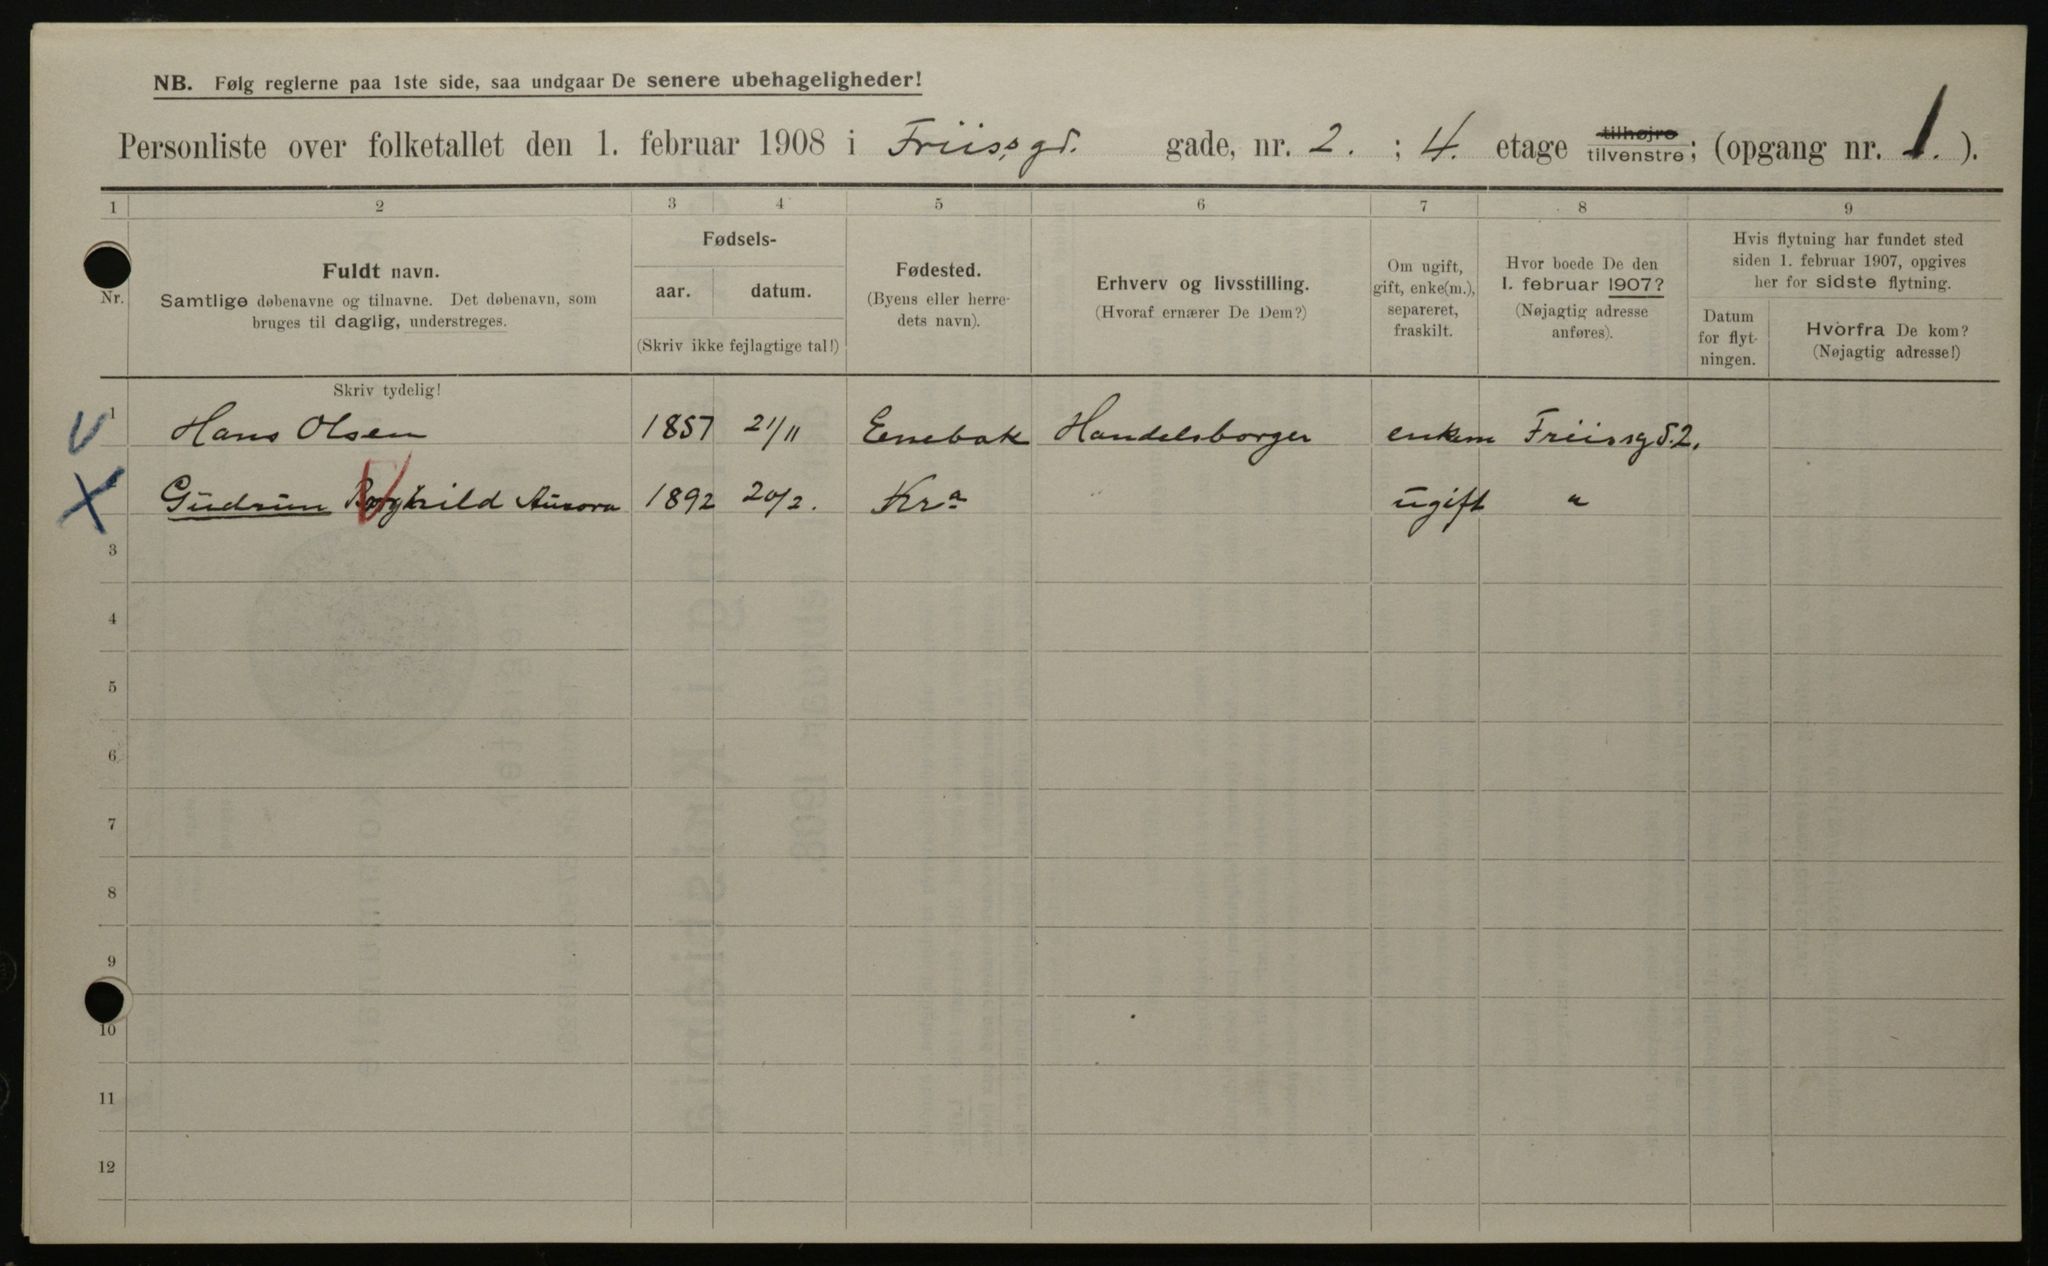 NB. Følg reglerne paa 1ste side, saa undgaar De senere ubehageligheder!
Personliste over folketallet den 1. februar 1908 i Friisgd. gade, nr. 2. ; 4. etage tilhøjre tilvenstre; (opgang nr. 1. ).
1 2 3 4 5 6 7 8 9
Nr.
Fuldt navn.
Samtlige døbenavne og tilnavne. Det døbenavn, som
bruges til daglig, understreges.
Skriv tydelig!
Fødsels-
aar. datum.
(Skriv ikke fejlagtige tal!)
Fødested.
(Byens eller herre-
dets navn).
Erhverv og livsstilling.
(Hvoraf ernærer De Dem?)
Om ugift,
gift, enke(m.),
separeret,
fraskilt.
Hvor boede De den
1. februar 1907?
(Nøjagtig adresse
anføres).
Hvis flytning har fundet sted
siden 1. februar 1907, opgives
her for sidste flytning.
Datum
for flyt-
ningen.
Hvorfra De kom?
(Nøjagtig adresse!)
1 Hans Olsen 1857 21/11 Enebak Handelsborger enkem Friisgd. 2.
2 Gudrun Borghild Aurora 1892 20/2. Kra ugift "
3
4
5
6
7
8
9
10
11
12